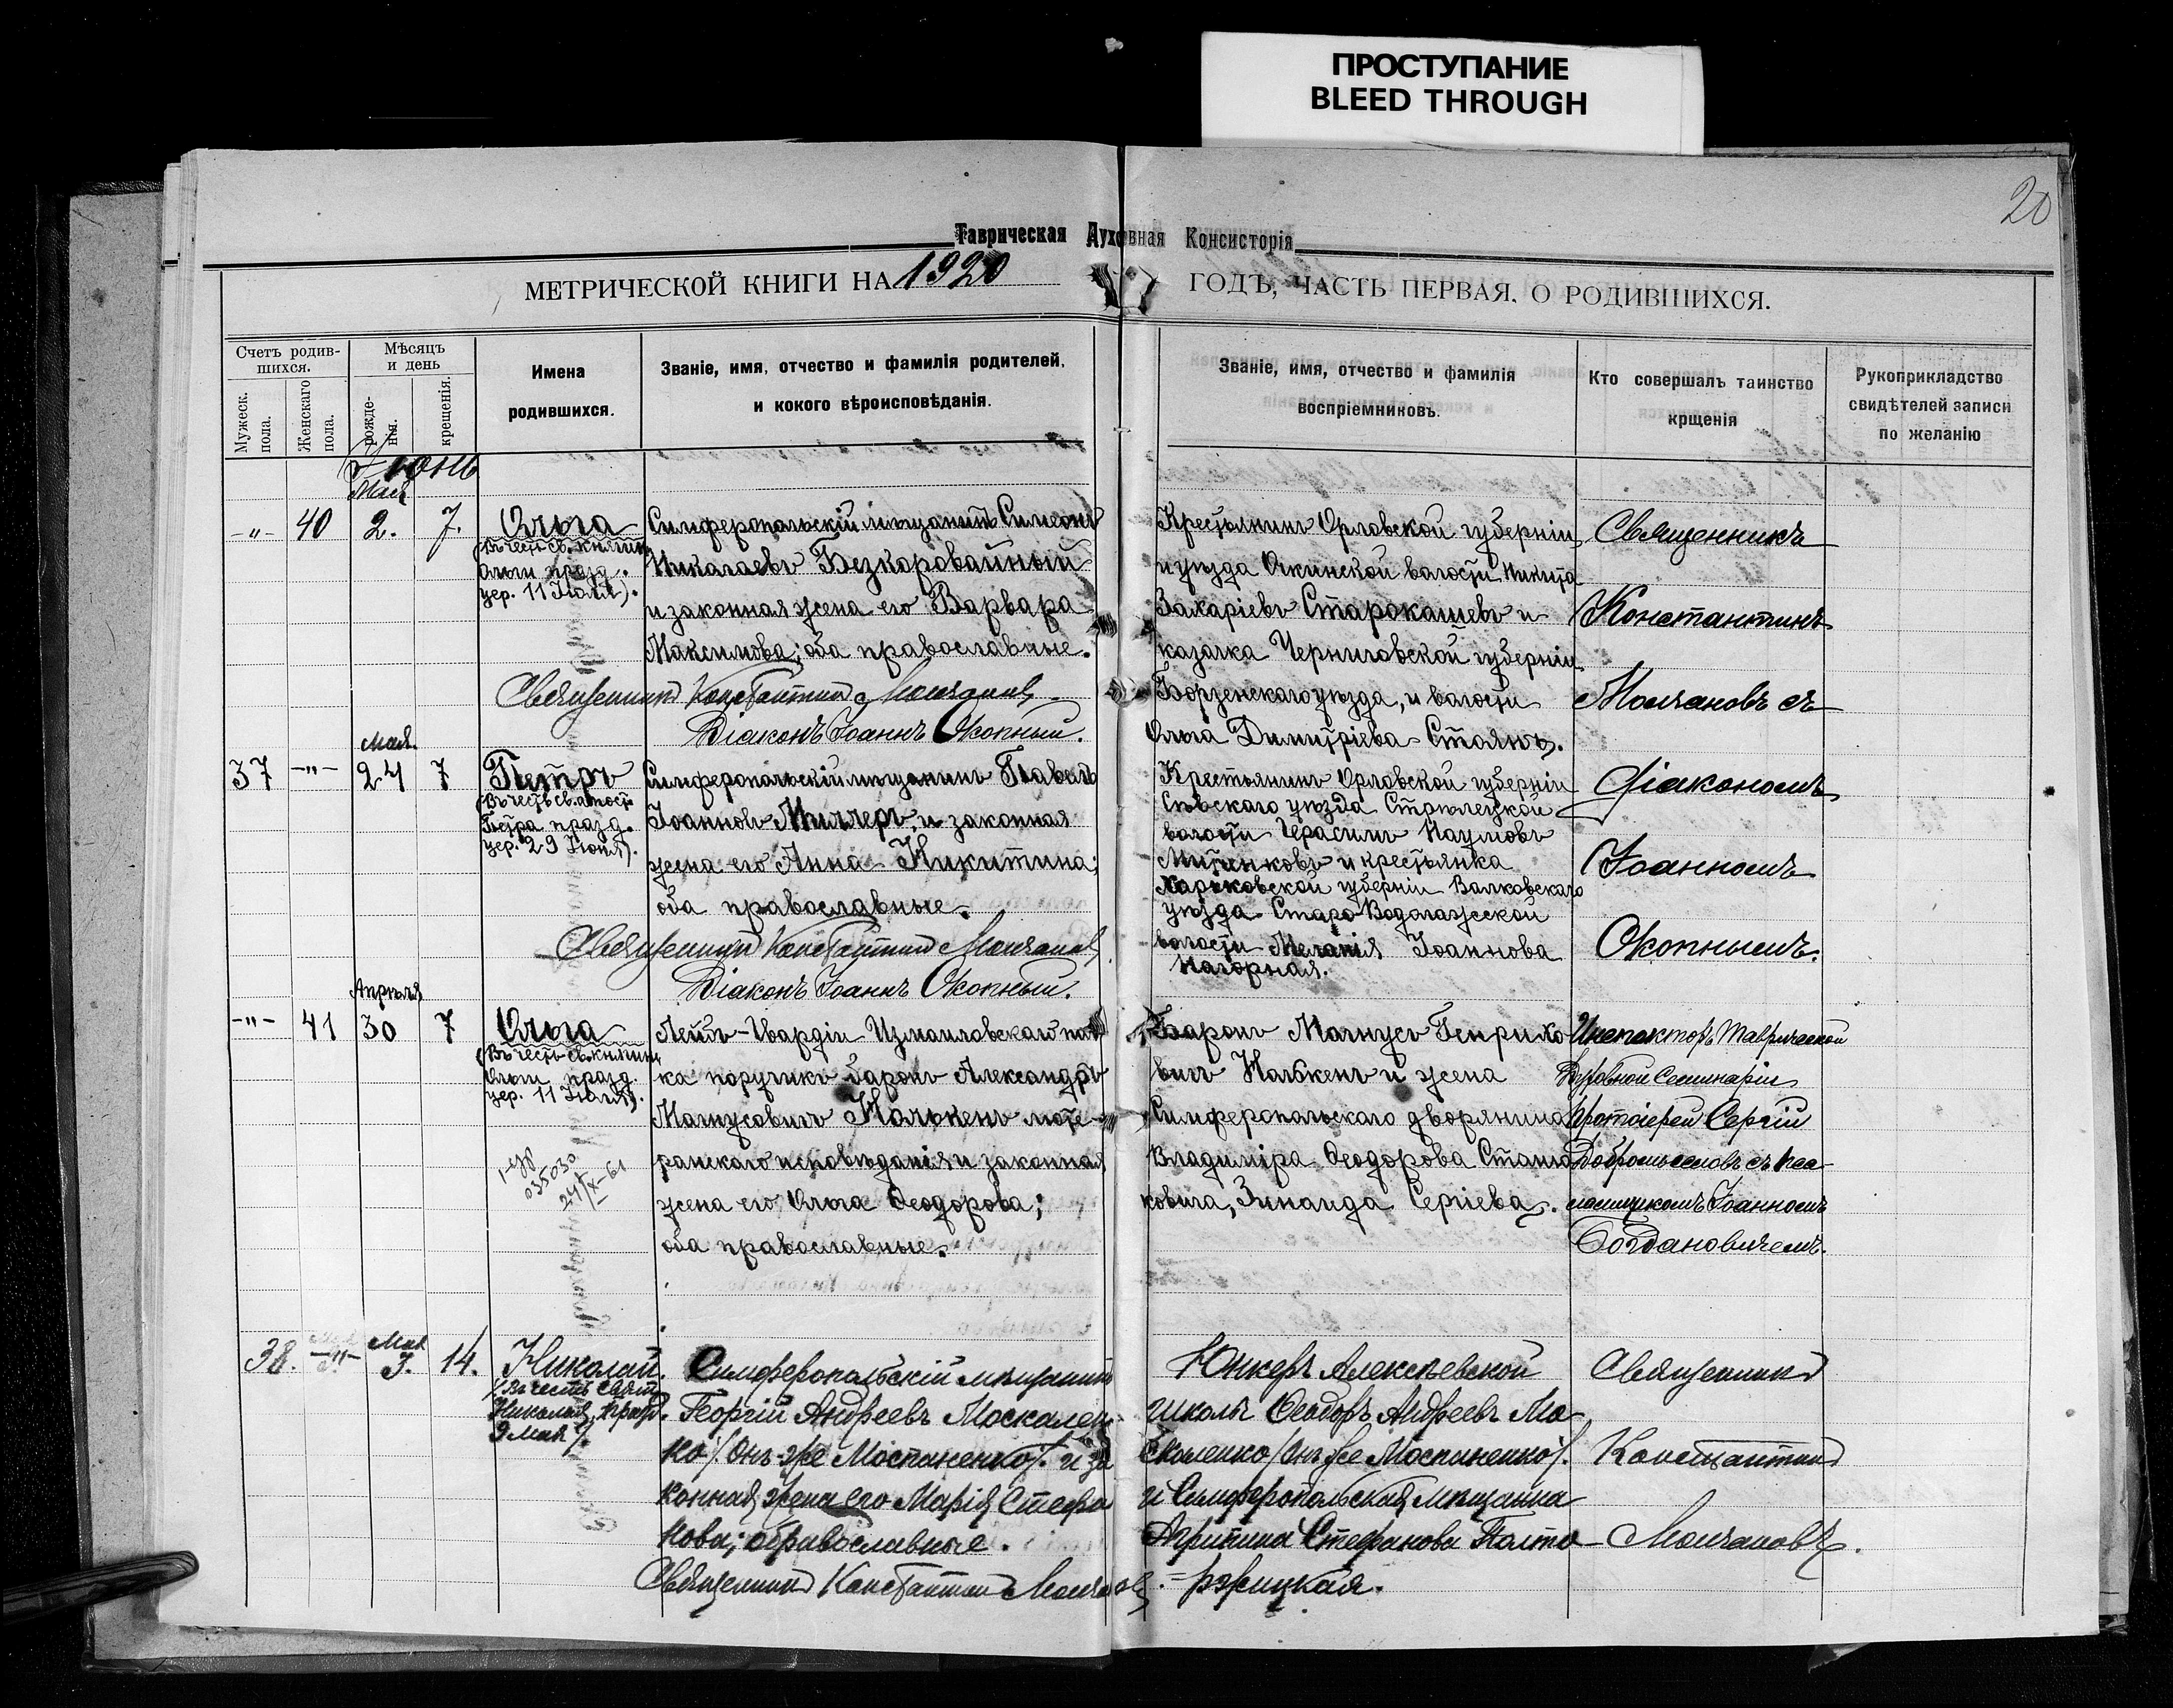 ПРОСТУПАНИЕ
BLEED THROUGH
20
Таврическая Духовная Консисторія
МЕТРИЧЕСКОЙ КНИГИ НА 1920 ГОДЪ, ЧАСТЬ ПЕРВАЯ, О РОДИВШИХСЯ.
Счетъ родив-
шихся.
Мужеск.
пола.
Женскаго
пола.
Мѣсяцъ
и день
рожде-
нія.
крещенія.
Имена
родившихся.
Званіе, имя, отчество и фамилія родителей,
и кокого вѣроисповѣданія.
Званіе, имя, отчество и фамилія
воспріемниковъ.
Кто совершалъ таинство
крщенія
Рукоприкладство
свидѣтелей записи
по желанію
Іюнь
Мая
-"- 40 2. 7.
Ольга
(Въ честь св. княгини
Ольги празд.
цер. 11 Іюля).
Симферопольскій мѣщанинъ Симеонъ
Николаевъ Безкоровайный
и законная жена его Варвара
Максимова; оба православные.
Священникъ Константинъ Молчановъ
Діаконъ Іоаннъ Окопный.
Крестьянинъ Орловской губерніи
и уѣзда Очкинской волости Никита
Захаріевъ Старокашевъ и
казачка Черниговской губерніи
Борзенскаго уѣзда, и волости
Ольга Димитріева Стоянъ.
Священникъ
Константинъ
Молчановъ съ
Мая.
37 -"- 24 7
Петръ
(Въ честь св. апост.
Петра празд.
цер. 29 Іюня).
Симферопольскій мѣщанинъ Павелъ
Іоанновъ Миллеръ, и законная
жена его Анна Никитина;
оба православные.
Священникъ Константинъ Молчановъ
Діаконъ Іоаннъ Окопный.
Крестьянинъ Орловской губерніи
Сѣвскаго уѣзда Стрѣлецкой
волости Герасимъ Наумовъ
Митянковъ и крестьянка
Харьковской губерніи Валковскаго
уѣзда Старо-Водолажеской
волости Меланія Іоаннова
Нагорная.
Діакономъ
Іоанномъ
Окопнымъ.
Апрѣля
-"- 41 30 7
Ольга
(Въ честь св. княгини
Ольги празд.
цер. 11 Іюля).
035030
24/X-61
Лейбъ-Гвардіи Измаиловскаго пол-
ка поручикъ баронъ Александръ
Магнусовичъ Нолькенъ люте-
ранскаго исповѣданія и законная
жена его Ольга Ѳеодорова;
оба православные.
Баронъ Магнусъ Генрихо-
вичъ Нолькенъ и жена
Симферопольскаго дворянина
Владиміра Ѳеодорова Станко-
ковича, Зинаида Сергіева.
Инспекторъ Таврической
Духовной Семинаріи
Протоіерей Сергій
Добромысловъ съ пса-
ломщикомъ Іоанномъ
Богдановичемъ.
Мая
38. -"- 3. 14.
Николай.
(Въ честь Свят.
Николая, празд.
9 Мая).
Симферопольскій мѣщанинъ
Георгій Андреевъ Москален-
ко /Онъ-же Моспаненко/. и за
конная жена его Марія Стефа
нова; православные.
Священникъ Константинъ Молчановъ
Юнкеръ Алексѣевской
школы Ѳеодоръ Андреевъ Мо-
скаленко /Онъ же Моспаненко/.
и Симферопольская мѣщанка
Агрипина Стефанова Полто-
=ржицкая.
Священникъ
Константинъ
Молчановъ.